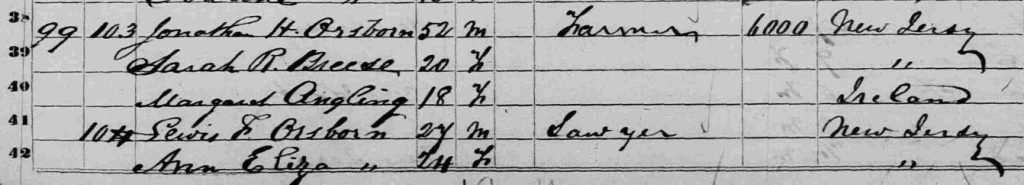 38 99 103 Jonathan H. Orsborn 52 M Farmer 6000 New Jersy
39 Sarah R. Breese 20 F "
40 Margaret Angling 18 F Ireland
41 104 Lewis F Orsborn 27 M Sawyer New Jersy
42 Ann Eliza " 24 F "